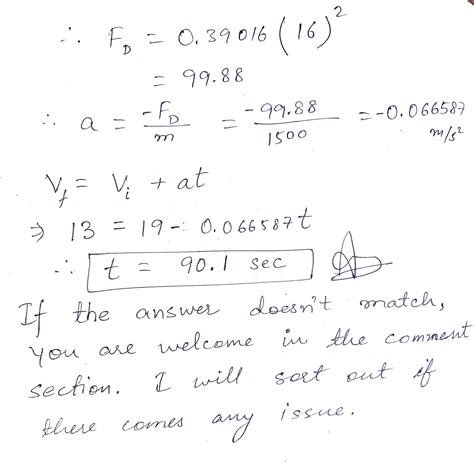 ∴ F_D = 0.39016 (16)²
= 99.88
∴ a = -F_D / m = -99.88 / 1500 = -0.066587 m/s²
V_f = V_i + at
⇒ 13 = 19 - 0.066587 t
∴ t = 90.1 sec
If the answer doesn't match,
you are welcome in the comment
section. I will sort out if
there comes any issue.